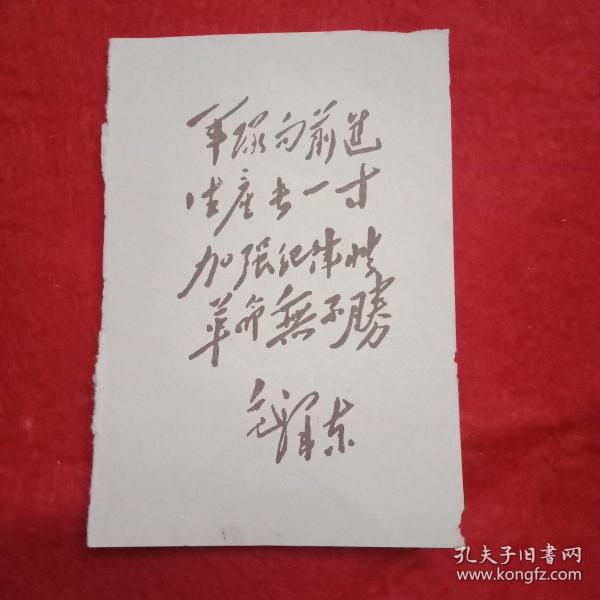 军隊向前进
生産长一寸
加强纪律性
革命無不勝
毛泽东
孔夫子旧書网
www.kongfz.com